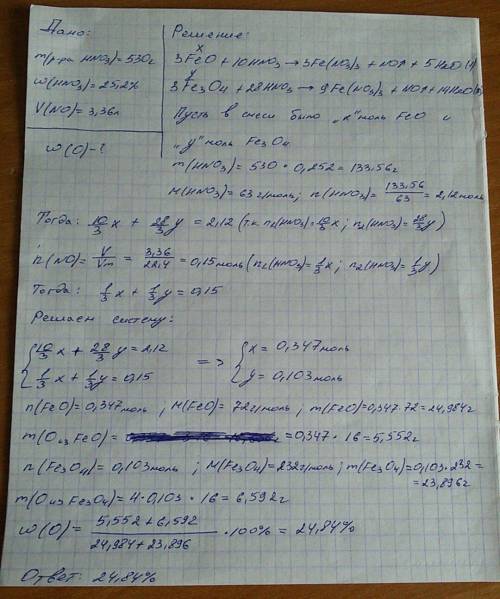 Дано:
m(р-ра HNO3)=530г
w(HNO3)=25,2%
V(NO)=3,36л
w(O)-?
Решение:
x
3FeO + 10HNO3 → 3Fe(NO3)3 + NO↑ + 5H2O (1)
y
3Fe3O4 + 28HNO3 → 9Fe(NO3)3 + NO↑ + 14H2O (2)
Пусть в смеси было „x" моль FeO и
„y" моль Fe3O4
m(HNO3) = 530 · 0,252 = 133,56г
M(HNO3) = 63 г/моль; n(HNO3) = 133,56/63 = 2,12 моль
Тогда: 10/3 x + 28/3 y = 2,12 (т.к n1(HNO3) = 10/3 x; n2(HNO3) = 28/3 y)
n(NO) = V/Vm = 3,36/22,4 = 0,15 моль (n1(HNO3) = 1/3 x; n2(HNO3) = 1/3 y)
Тогда: 1/3 x + 1/3 y = 0,15
Решаем систему:
{ 10/3 x + 28/3 y = 2,12 => { x = 0,347 моль
1/3 x + 1/3 y = 0,15 y = 0,103 моль
n(FeO) = 0,347 моль; M(FeO) = 72 г/моль; m(FeO) = 0,347 · 72 = 24,984г
m(O из FeO) = 0,347 · 16 = 5,552г
n(Fe3O4) = 0,103 моль; M(Fe3O4) = 232 г/моль; m(Fe3O4) = 0,103 · 232 =
= 23,896г
m(O из Fe3O4) = 4 · 0,103 · 16 = 6,592г
w(O) = 5,552 + 6,592 / 24,984 + 23,896 · 100% = 24,84%
Ответ: 24,84%